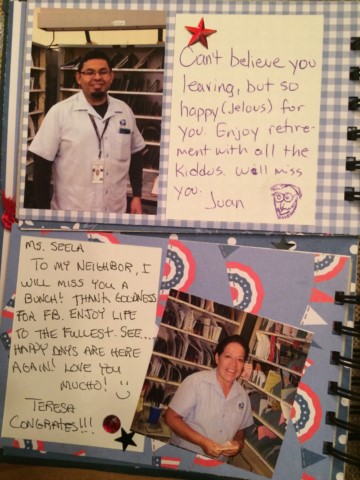 Can't believe you
leaving, but so
happy (Jelous) for
you. Enjoy retire-
ment with all the
kiddos. We'll miss
you.
Juan
Ms. Seela
To my neighbor, I
will miss you a
bunch! Thank goodness
for FB. Enjoy life
to the fullest. See...
Happy days are here
again! Love you
mucho!
Teresa
Congrates!!!